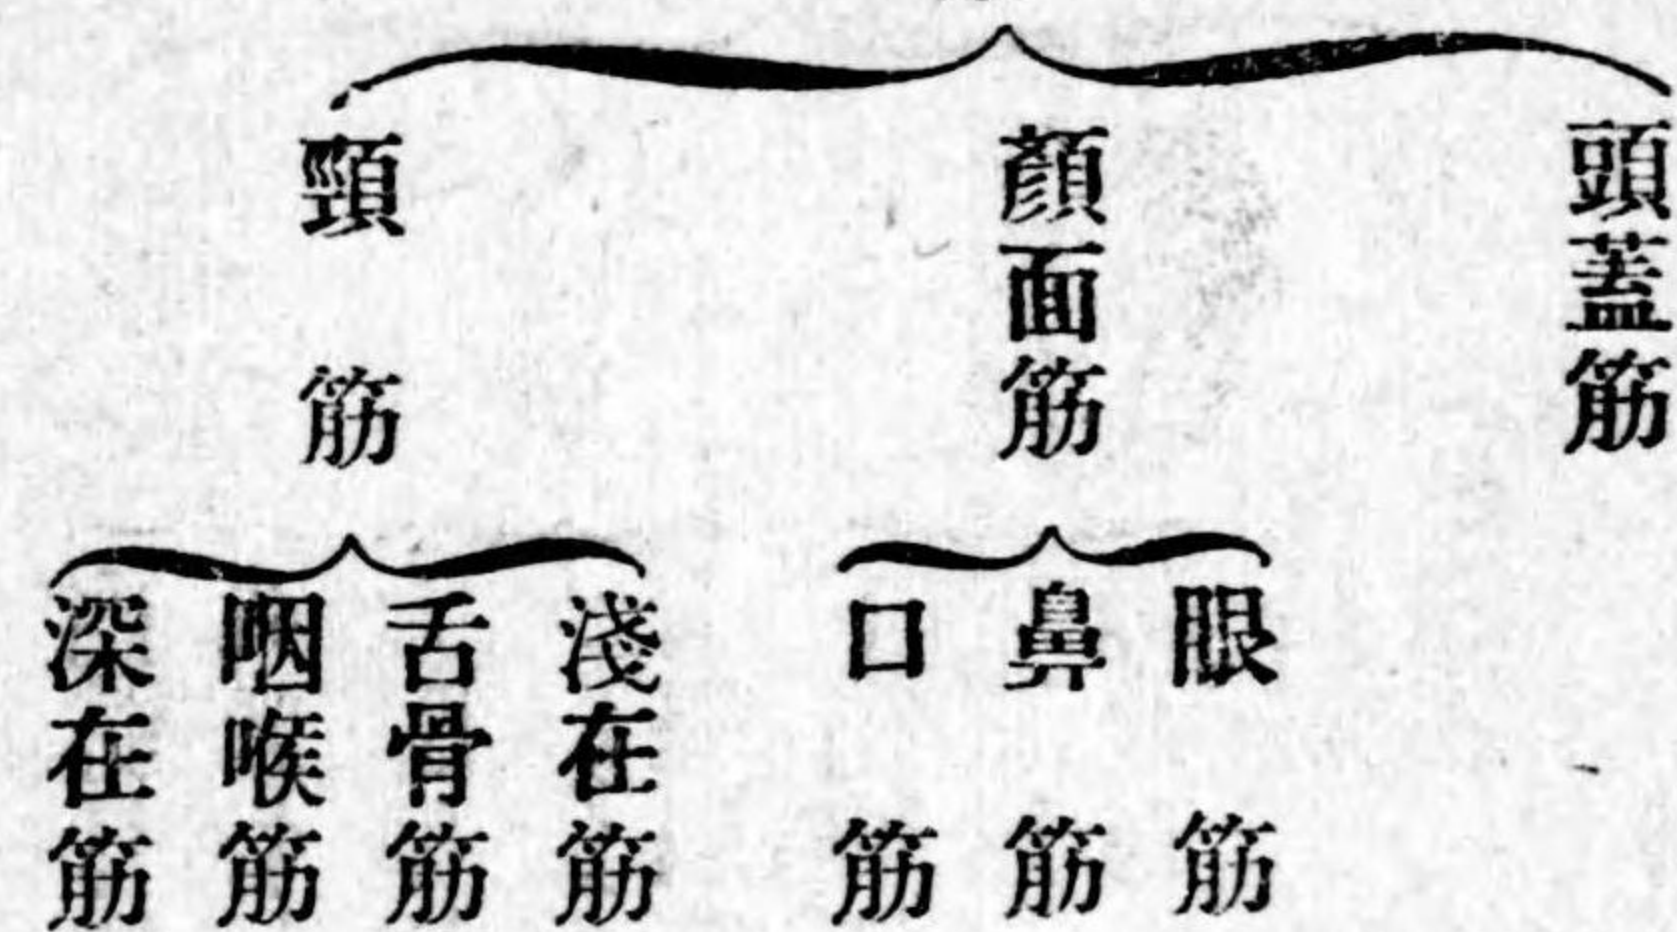 頭蓋筋
顏面筋
眼筋
鼻筋
口筋
頸筋
淺在筋
舌骨筋
咽喉筋
深在筋